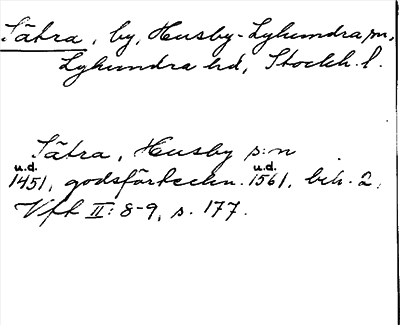 Sätra, by, Husby-Lyhundra sn,
Lyhundra hd, Stockh. l.
Sätra, Husby s:n
u.d. u.d.
1451, godsförteckn. 1561, bih. 2,
Vft II: 8-9, s. 177.